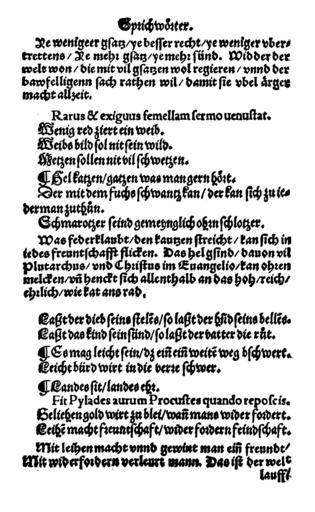 Sprichwörter.
Je wenigeer gsatz/ye besser recht/ye weniger vber-
trettens/ Je mehr gsatz/ye mehr sünd. Widder der
welt won/die mit vil gsatzen wol regieren/vnnd der
bawfelligenn sach rathen wil/damit sie vbel ärger
macht allzeit.
Rarus & exiguus femellam sermo uenustat.
Wenig red ziert ein weib.
Weibs bild sol nit sein wild.
Metzen sollen nit vil schwetzen.
¶ Hel katzen/gatzen was man gern hört.
Der mit dem fuchsschwantz kan/der kan sich zu ie-
derman zuthůn.
Schmarotzer seind gemeynglich orin schlotzer.
Was federklaubt/den kautzen streicht/kan sich in
iedes freuntschafft flicken. Das hel gsind/dauon vil
Plutarchus/vnd Christus im Euangelio/kan ohren
melcken/vñ henckt sich allenthalb an das hoh/reich/
ehrlich/wie kat ans rad.
Laßt der dieb seins stelēs/so laßt der hūd seins bellēs.
Laßt das kind sein sünd/so laßt der vatter die růt.
¶ Es mag leicht sein/dz ein ein weitē weg bschwert.
Leicht bürd wirt in die verre schwer.
¶ Landes sit/landes ehr.
Fit Pylades aurum Procustes quando reposcis.
Geliehen gold wirt zu bley/wañ mans wider fordert.
Leihē macht freuntschaft/widerfordern feindschaft.
Mit leihen macht vnnd gewint man ein freundt/
Mit widerfordern verleurt mann. Das ist der welt
lauff/